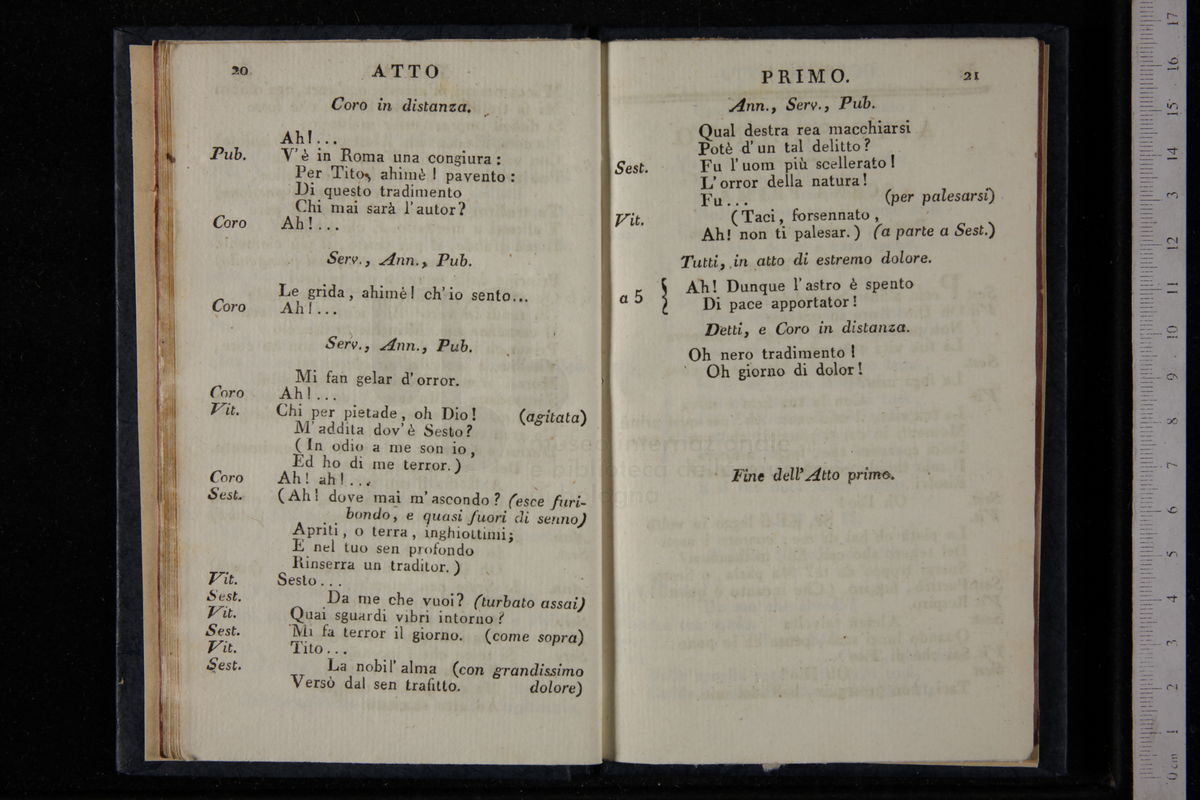 20 ATTO
Coro in distanza.
Ah!...
Pub. V'è in Roma una congiura:
Per Tito, ahimè! pavento:
Di questo tradimento
Chi mai sarà l'autor?
Coro Ah!...
Serv., Ann., Pub.
Le grida, ahimè! ch'io sento...
Coro Ah!...
Serv., Ann., Pub.
Mi fan gelar d'orror.
Coro Ah!...
Vit. Chi per pietade, oh Dio! (agitata)
M'addita dov'è Sesto?
(In odio a me son io,
Ed ho di me terror.)
Coro Ah! ah!...
Sest. (Ah! dove mai m'ascondo? (esce furi-
bondo, e quasi fuori di senno)
Apriti, o terra, inghiottimi;
E nel tuo sen profondo
Rinserra un traditor.)
Vit. Sesto...
Sest. Da me che vuoi? (turbato assai)
Vit. Quai sguardi vibri intorno?
Sest. Mi fa terror il giorno. (come sopra)
Vit. Tito...
Sest. La nobil' alma (con grandissimo
Versò dal sen trafitto. dolore)
PRIMO. 21
Ann., Serv., Pub.
Qual destra rea macchiarsi
Potè d'un tal delitto?
Sest. Fu l'uom più scellerato!
L'orror della natura!
Fu... (per palesarsi)
Vit. (Taci, forsennato,
Ah! non ti palesar.) (a parte a Sest.)
Tutti, in atto di estremo dolore.
a 5 { Ah! Dunque l'astro è spento
Di pace apportator!
Detti, e Coro in distanza.
Oh nero tradimento!
Oh giorno di dolor!
museo internazionale
e biblioteca della
bologna
Fine dell'Atto primo.
0 cm 1 2 3 4 5 6 7 8 9 10 11 12 13 14 15 16 17